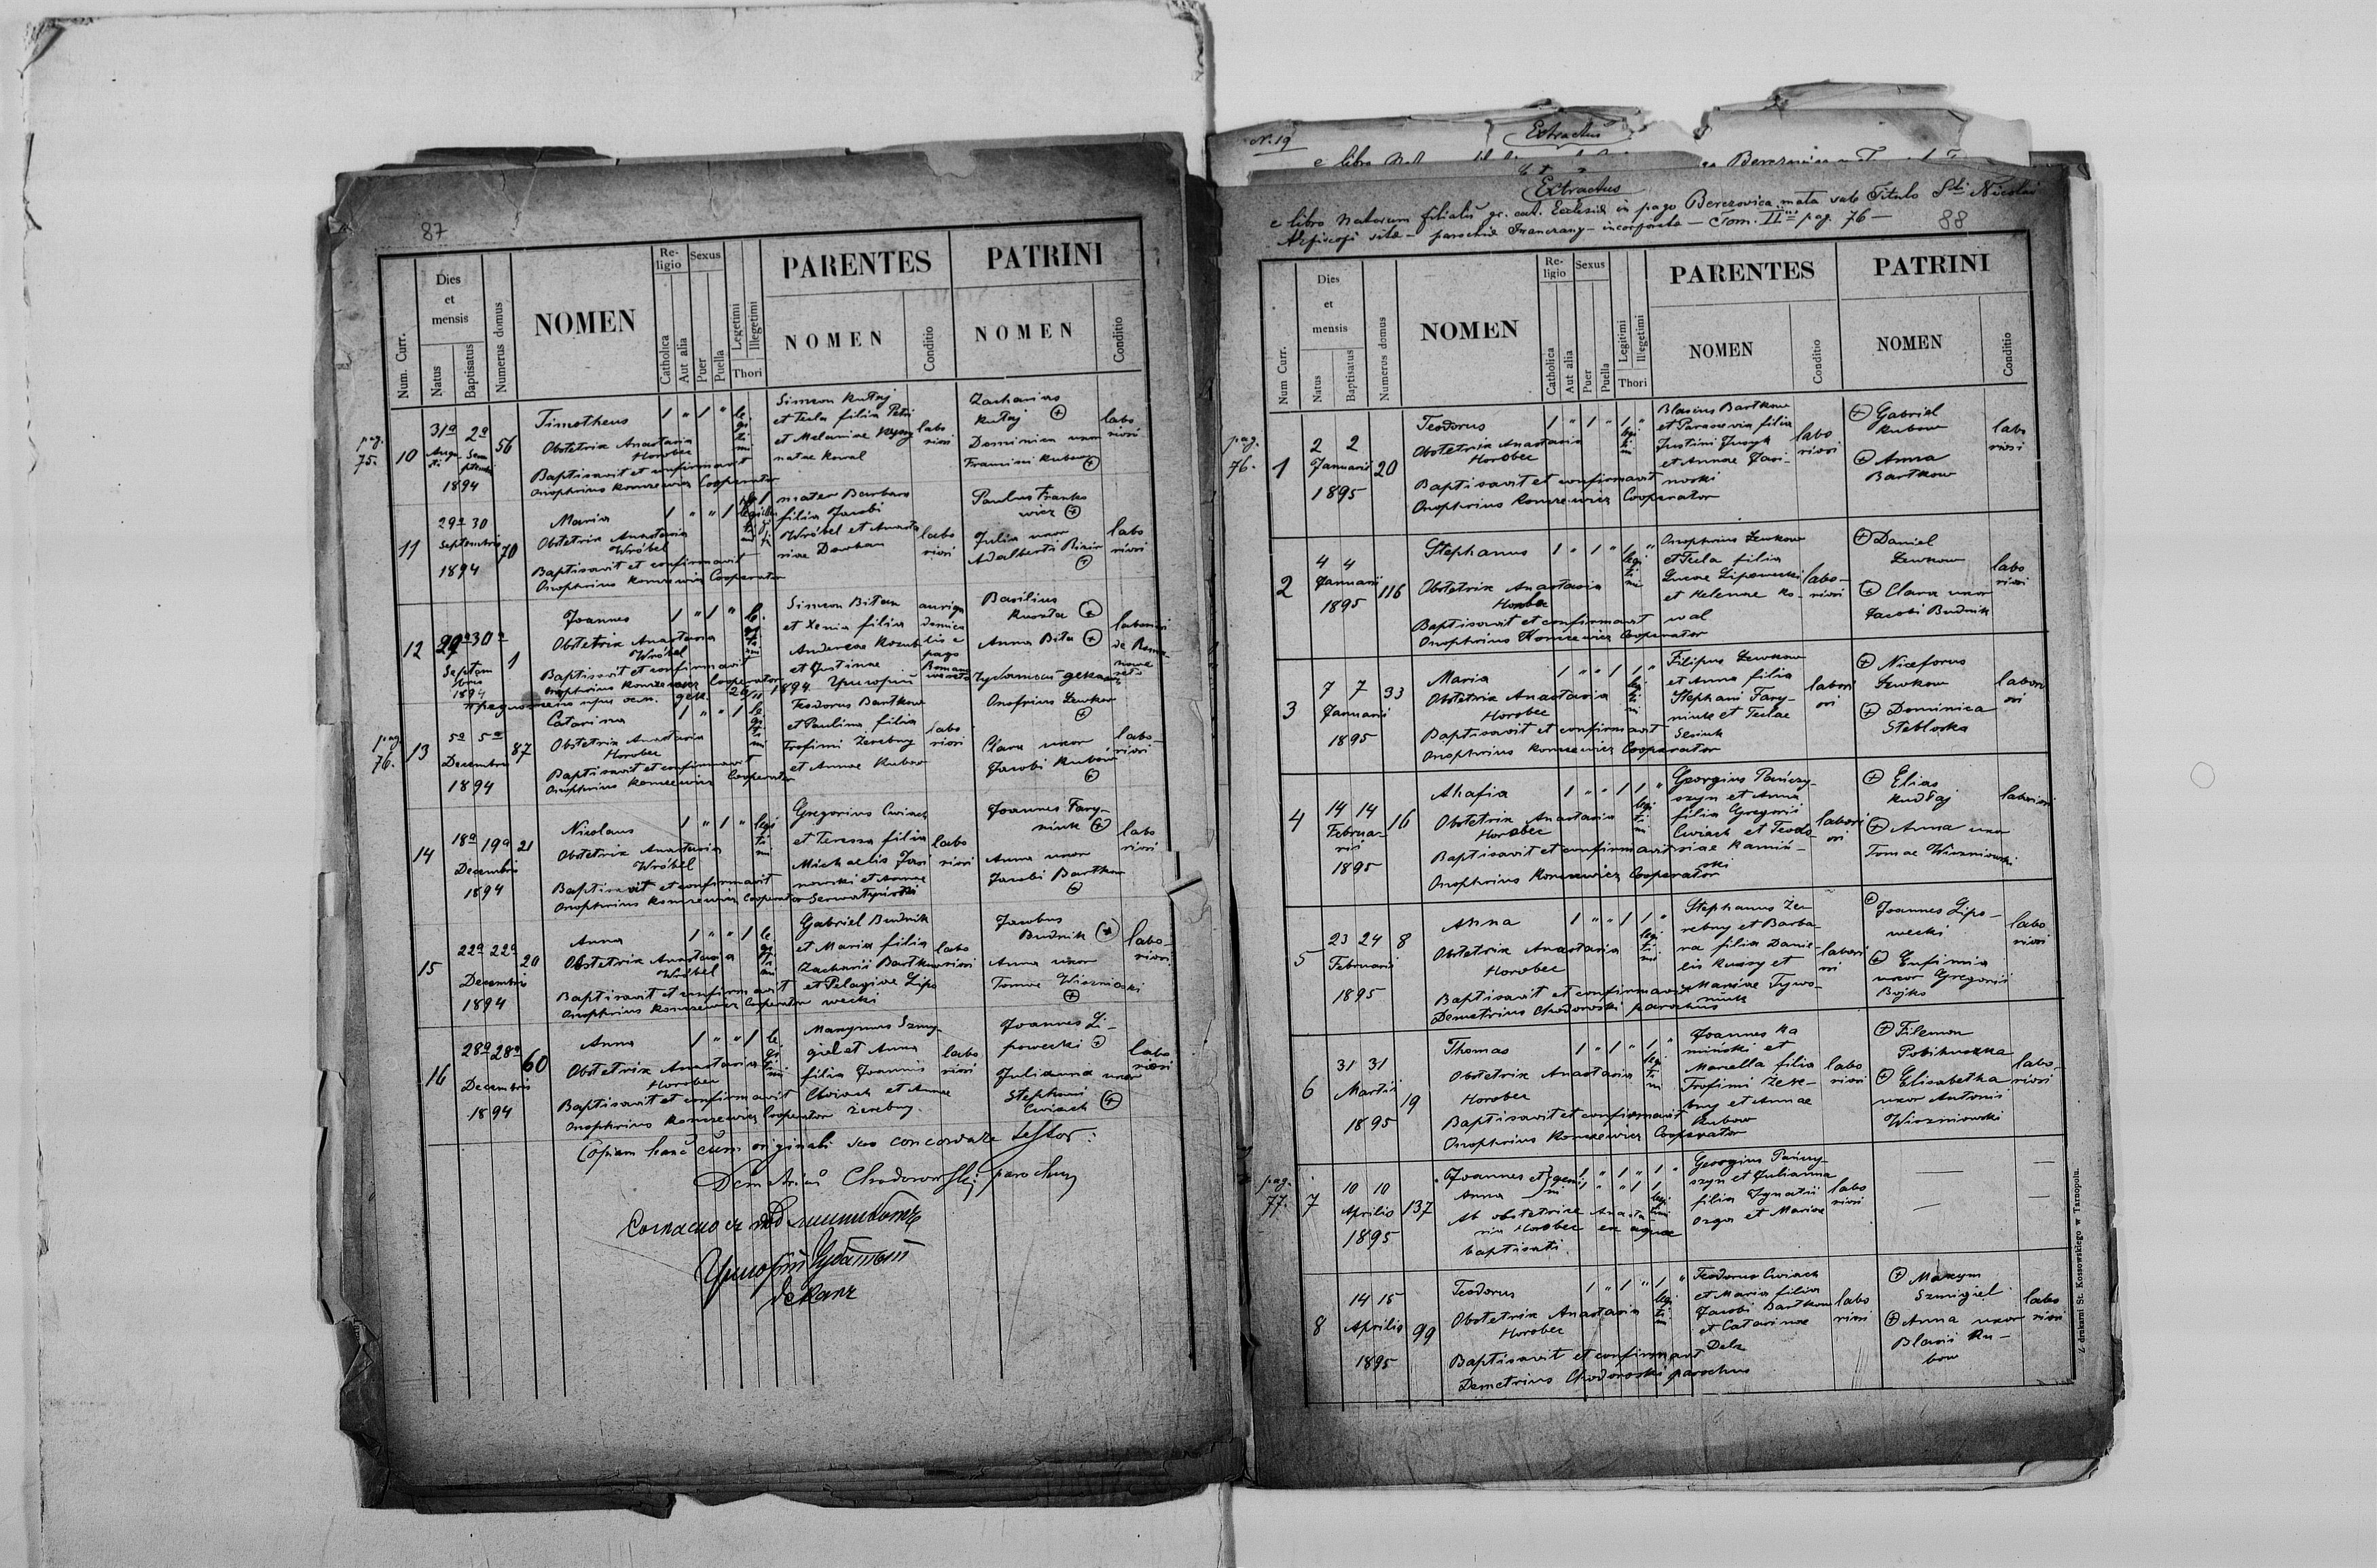 87
Num. Curr.
Dies et mensis
Natus
Baptisatus
Numerus domus
NOMEN
Re-
ligio
Catholica
Aut alia
Sexus
Puer
Puella
Legetimi
Illegetimi
Thori
PARENTES
NOMEN
Conditio
PATRINI
NOMEN
Conditio
pag.
75.
10
31a 2a
1894
56
Timotheus
Obstetrix Anastasia
Horobec
Baptisavit et confirmavit
Onophrius Konczewicz Cooperator
1 " 1 "
Simeon Kutaj
et Tecla filia Petri
et Melaniae
natae Kowal
labo
riosi
Zacharias
Kutaj
Dominica uxor
labo
riosi
11
29a 30
Septembris
1894
70
Maria
Obstetrix Anastasia
Wróbel
Baptisavit et confirmavit
Onophrius Konczewicz Cooperator
1 " " 1
mater Barbara
filia Jacobi
Wróbel et Anasta
siae
labo
riosi
Paulus Franko
wicz
Julia uxor
Adalberti
labo
riosi
12
29a 30a
Septem
bris
1894
1
Joannes
Obstetrix Anastasia
Wróbel
Baptisavit et confirmavit
Onophrius Konczewicz Cooperator
1 " 1 "
Simeon Bitus
et Xenia filia
Andreae
et Justinae
auriga
pago
Basilius
Anna Bita
pag.
76.
13
5a 5a
Decembris
1894
87
Catarina
Obstetrix Anastasia
Horobec
Baptisavit et confirmavit
Onophrius Konczewicz Cooperator
1 " " 1
Teodorus Bartkow
et Paulina filia
Trofimi Zerebny
et Annae Kubow
labo
riosi
Onofrius Lewkow
Clara uxor
Jacobi Kubow
labo-
riosi
14
18a 19a
Decembris
1894
21
Nicolaus
Obstetrix Anastasia
Wróbel
Baptisavit et confirmavit
Onophrius Konczewicz Cooperator
1 " 1 "
Gregorius Cwiach
et Teressa filia
Michaelis Jasi
nowski et Annae
labo
riosi
Joannes Fary-
niuk
Anna uxor
Jacobi Bartkow
labo
riosi
15
22a 22a
Decembris
1894
20
Anna
Obstetrix Anastasia
Wróbel
Baptisavit et confirmavit
Onophrius Konczewicz Cooperator
1 " " 1
Gabriel Budnik
et Maria filia
Zacharii Bartkow
et Pelagiae Lipo
wecki
labo
riosi
Jacobus
Budnik
Anna uxor
Tomae Wiszniowski
labo-
riosi
16
28a 28a
Decembris
1894
60
Anna
Obstetrix Anastasia
Horobec
Baptisavit et confirmavit
Onophrius Konczewicz Cooperator
1 " " 1
Maxymus Szmy-
giel et Anna
filia Joannis
Cwiach et Annae
Zerebny.
labo
riosi
Joannes Li-
powecki
Julianna uxor
Stephani
Cwiach
labo
riosi
Copiam hanc cum originali suo concordare testor:
Demetrius Chodorowski parochus
деканъ
No. 19
Extractus
e libro
Extractus
e libro Natorum filialis gr. cat. Ecclesiae in pago Berezovica mała sub Titulo Sti Nicolai
- incorporata - Tom. II pag. 76 -
88
Num Curr.
Dies
et
mensis
Natus
Baptisatus
Numerus domus
NOMEN
Re-
ligio
Catholica
Aut alia
Sexus
Puer
Puella
Legitimi
Illegetimi
Thori
PARENTES
NOMEN
Conditio
PATRINI
NOMEN
Conditio
pag.
76.
1
2 2
Januarii
1895
20
Teodorus
Obstetrix Anastasia
Horobec
Baptisavit et confirmavit
Onophrius Konczewicz Cooperator
1 " 1 " 1 "
Blasius Bartkow
et Parascevia filia
Justini
et Annae Jasi-
nowski
labo
riosi
Gabriel
Kubow
Anna
Bartkow
labo
riosi
2
4 4
Januarii
1895
116
Stephanus
Obstetrix Anastasia
Horobec
Baptisavit et confirmavit
Onophrius Konczewicz Cooperator
1 " 1 " 1 "
Onophrius Lewkow
et Tecla filia
Lucae Lipowecki
et Helenae Ko-
wal
labo-
riosi
Daniel
Lewkow
Clara uxor
Jacobi Budnik
labo
riosi
3
7 7
Januarii
1895
33
Maria
Obstetrix Anastasia
Horobec
Baptisavit et confirmavit
Onophrius Konczewicz Cooperator
1 " " 1 1 "
Filipus Lewkow
et Anna filia
Stephani Fary-
niuk et Teclae
labori
osi
Niceforus
Lewkow
Dominica
Steblovska
labori
osi
4
14 14
Februa-
rii
1895
16
Ahafia
Obstetrix Anastasia
Horobec
Baptisavit et confirmavit
Onophrius Konczewicz Cooperator
1 " " 1 1 "
Georgius Pańczy-
szyn et Anna
filia Gregorii
Cwiach et Teodo-
siae Kamiń-
ski
labori
osi
Elias
Kudłaj
Anna uxor
Tomae Wiszniowski
laboriosi
5
23 24
Februarii
1895
8
Anna
Obstetrix Anastasia
Horobec
Baptisavit et confirmavit
Demetrius Chodorowski parochus
1 " " 1 1 "
Stephanus Ze-
rebny et Barba-
ra filia Danie-
lis et
Mariae
labori
osi
Joannes Lipo-
wecki
Eufimia
uxor Gregorii
Bojko
labo
riosi
6
31 31
Martii
1895
19
Thomas
Obstetrix Anastasia
Horobec
Baptisavit et confirmavit
Onophrius Konczewicz Cooperator
1 " 1 " 1 "
Joannes Ka
miński et
Marcella filia
Trofimi Zere-
bny et Annae
Kubow
labo
riosi
Filemon
Pobihuszka
Elisabetha
uxor Antonii
Wiszniowski
labo-
riosi
pag.
77.
7
10 10
Aprilis
1895
137
Joannes et
Anna
gemi
ni
Ab obstetrice Anasta
sia Horobec ex aqua
baptisati.
Georgius Pańczy-
szyn et Julianna
filia Ignatii
et Mariae
labo
riosi
8
14 15
Aprilis
1895
99
Teodorus
Obstetrix Anastasia
Horobec
Baptisavit et confirmavit
Demetrius Chodorowski parochus
1 " 1 " 1 "
Teodorus Cwiach
et Maria filia
Jacobi Bartkow
et Catarinae
labo
riosi
Maxym
Szmigiel
Anna uxor
Blasii Ku-
bow
labo
riosi
Z drukarni St. Kossowskiego w Tarnopolu.